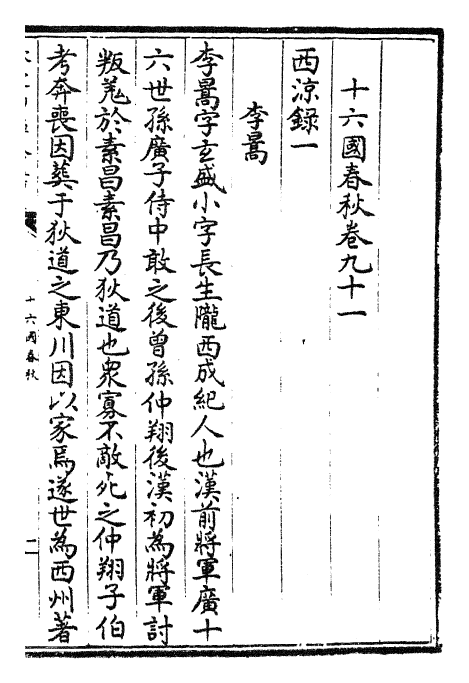 十六國春秋卷九十一
西涼録一
李暠
李暠字玄盛小字長生隴西成紀人也漢前將軍廣十
六世孫廣子侍中敢之後曾孫仲翔後漢初為將軍討
叛羌於素昌素昌乃狄道也衆寡不敵死之仲翔子伯
考奔喪因葬于狄道之東川因以家焉遂世為西州著
十六國春秋
二